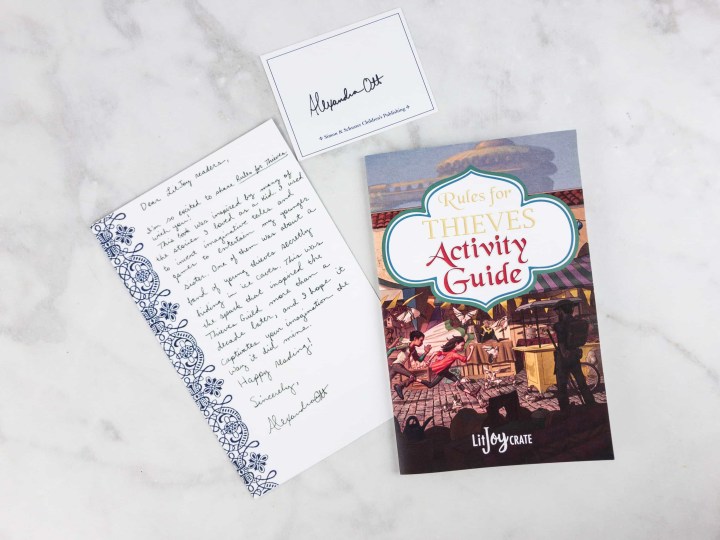 Alexandra Ott
✦ Simon & Schuster Children's Publishing ✦
Dear LitJoy readers,
I'm so excited to share Rules for Thieves
with you!
This book was inspired by many of
the stories I loved as a kid. I used
to invent imaginative tales and
games to entertain my younger
sister. One of them was about a
band of young thieves secretly
hiding in ice caves. This was
the spark that inspired the
Thieves Guild more than a
decade later, and I hope it
captivates your imagination the
way it did mine.
Happy reading!
Sincerely,
Alexandra Ott
Rules for
THIEVES
Activity
Guide
LitJoy CRATE